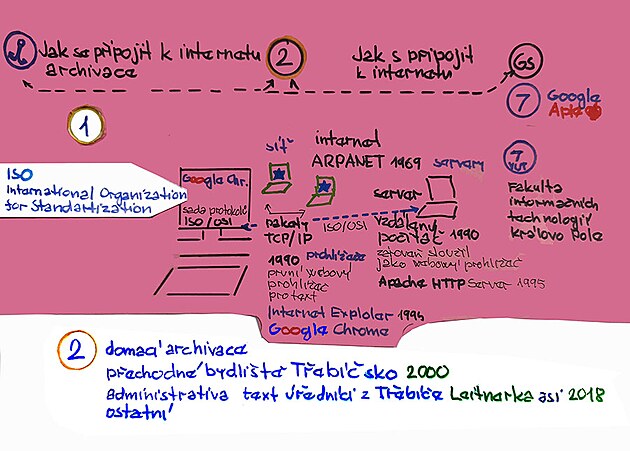 Jak se připojit k internetu
archivace
2
Jak s připojit
k internetu
GS
7
Google
Aple
1
ISO
International Organization
for Standartization
Google Chr.
sada protokolů
ISO/OSI
síť
internet
ARPANET 1969
servery
server
pakety
TCP/IP
ISO/OSI
vzdálený
počítač 1990
zároveň sloužil
jako webový prohlížeč
Apache HTTP server 1995
1990 prohlížeče
první webový
prohlížeč
pro text
Internet Explolar 1994
Google Chrome
7
VUT
Fakulta
informačních
technologií
Královo Pole
2
domací archivace
přechodné bydliště Třabíčsko 2000
administrativa text úředníci z Třabíče Leitnarka asi 2018
ostatní